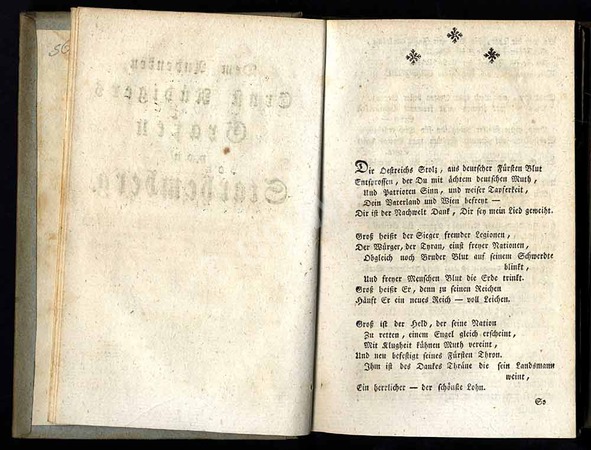 56
Dem Andenken
Ernst Rüdigers
Grafen
von
Starhemberg.
Dir Oestreichs Stolz, aus deutscher Fürsten Blut
Entsprossen, der Du mit ächtem deutschen Muth,
Und Patrioten Sinn, und weiser Tapferkeit,
Dein Vaterland und Wien befreyt —
Dir ist der Nachwelt Dank, Dir sey mein Lied geweiht.
Groß heißt der Sieger fremder Legionen,
Der Würger, der Tyran, einst freyer Nationen,
Obgleich noch Bruder Blut auf seinem Schwerdte
blinkt,
Und freyer Menschen Blut die Erde trinkt.
Groß heißt Er, denn zu seinen Reichen
Häuft Er ein neues Reich — voll Leichen.
Groß ist der Held, der seine Nation
Zu retten, einem Engel gleich erscheint,
Mit Klugheit kühnen Muth vereint,
Und neu befestigt seines Fürsten Thron.
Ihm ist des Dankes Thräne die sein Landsmann
weint,
Ein herrlicher — der schönste Lohn.
So